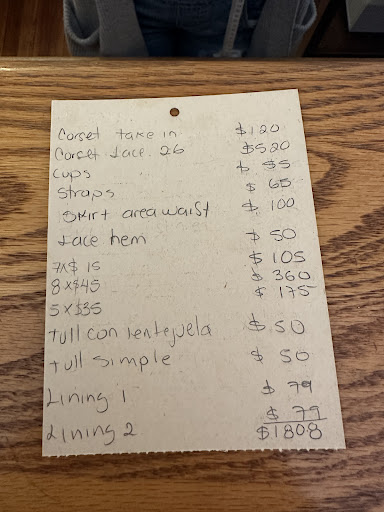 Corset take in $120
Corset Lace. 26 $520
Cups $ 55
Straps $ 65
Skirt area waist $ 100
Lace hem $ 50
7x$ 15 $ 105
8x$45 $ 360
5x$35 $ 175
Tull con lentejuela $ 50
Tull simple $ 50
Lining 1 $ 79
Lining 2 $ 79
$1808